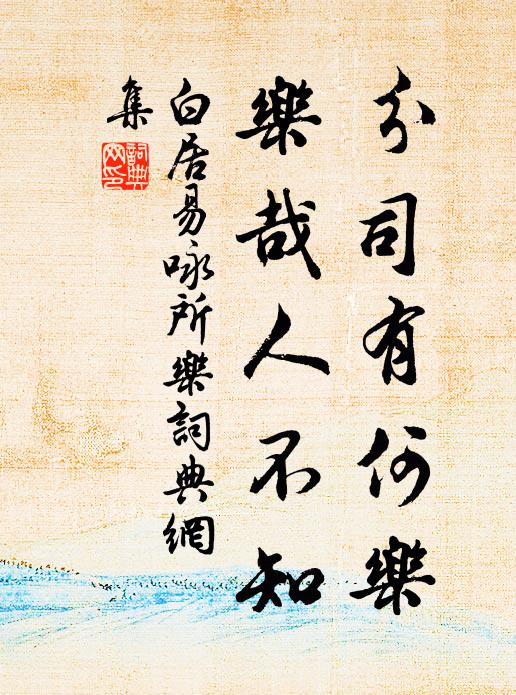 分司有何樂
樂哉人不知
白居易咏所樂詞典網
集
詞典
网印